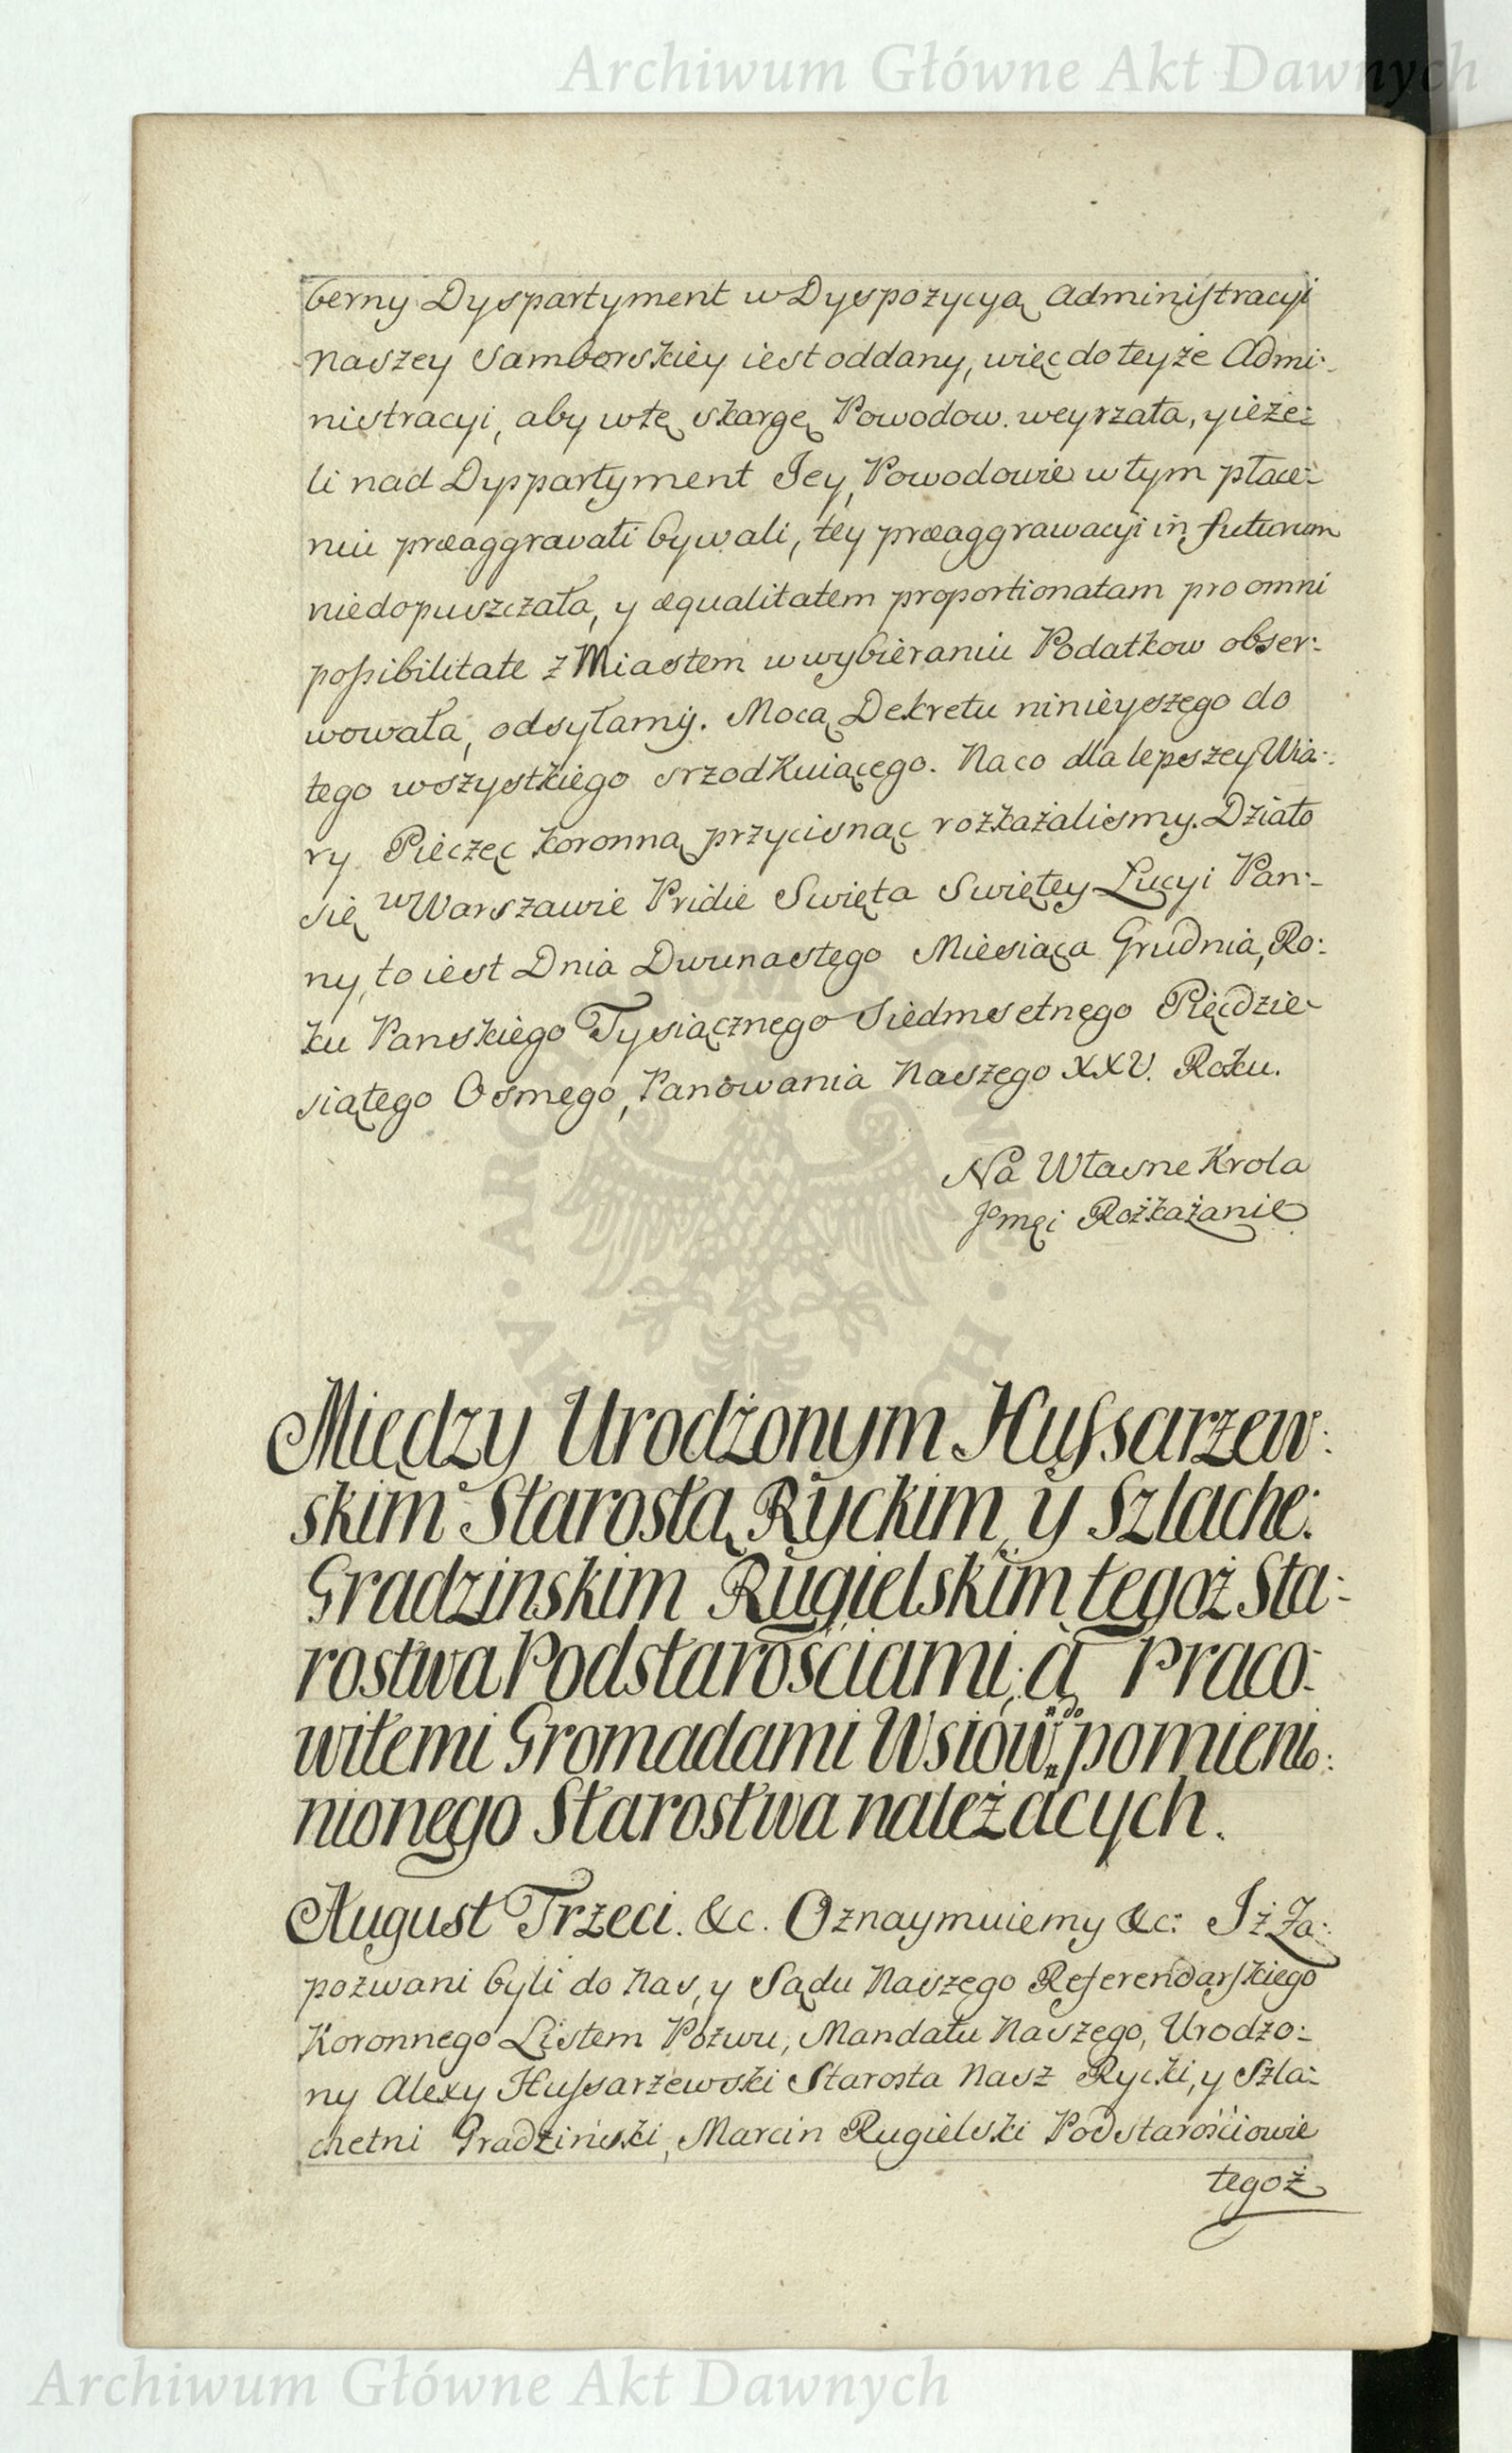 Archiwum Główne Akt Dawnych
berny Dyspartyment w Dyspozycyą Administracyi
naszey Samborskiey iest oddany, więc do teyże Admi:
nistracyi, aby w tę skargę Powodow. weyrzała, y ieże:
li nad Dyspartyment Jey, Powodowie w tym płace:
niu præaggravati bywali, tey præaggrawacyi in futurum
niedopuszczała, y æqualitatem proportionatam pro omni
possibilitate z Miastem w wybieraniu Podatkow obser:
wowała, odsyłamy. Mocą Dekretu ninieyszego do
tego wszystkiego srzodkuiącego. Na co dla lepszey Wia:
ry Pieczęc koronną przycisnąc rozkazalismy. Działo
się w Warszawie Pridie Swięta Swiętey Lucyi Pan:
ny, to iest Dnia Dwunastego Miesiąca Grudnia, Ro:
ku Panskiego Tysiącznego Siedmsetnego Pięcdzie-
siątego Osmego, Panowania Naszego XXV. Roku.
Na Własne Krola
Jmęi Rozkazanie
Między Urodzonym Hussarzew:
skim Starostą Ryckim, y Szlache:
Gradzinskim Rugielskim tegoż Sta:
rostwa Podstarościami, a Praco:
witemi Gromadami Wsiow do pomieni:
nionego Starostwa należących.
August Trzeci. &c. Oznaymuiemy &c: Iż Za:
pozwani byli do Nas, y Sądu Naszego Referendarskiego
Koronnego Listem Pozwu, Mandatu Naszego, Urodzo:
ny Alexy Hussarzewski Starosta Nasz Rycki, y Szla:
chetni Gradziński, Marcin Rugielski Podstarościowie
tegoż
Archiwum Główne Akt Dawnych